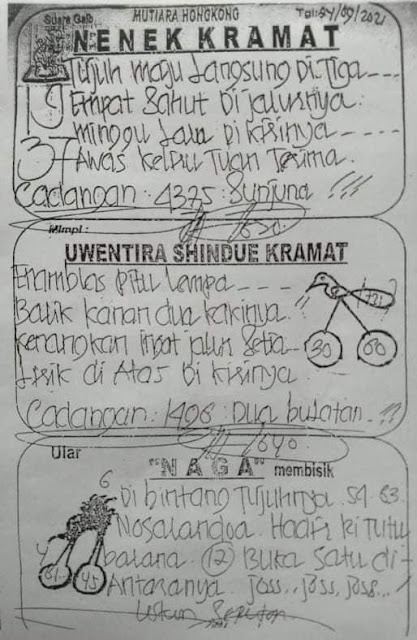 Suara Gaib
MUTIARA HONGKONG
NENEK KRAMAT
Tujuh maju Langsung Di Tiga ----
19 Empat Sahut Di jalurnya.
minggu Lalu Di kirinya ----
37 Awas Keliru Tuan Terima.
Cadangan : 4375 : !!!
Mimpi :
UWENTIRA SHINDUE KRAMAT
Enamblas pitu Lempa ----
Balik kanan dua kakinya !!
Kenangkan ingat jalur Setia --
di Atas Di kirinya
30 60
Cadangan : 1406 : Dua bulatan . !!
Ular
"NAGA" membisik
6
Di bintang Tujuhnya. 54. 63.
Hadir ki Tutu
(12) Buka Satu di-
Antaranya. Joss.. Joss, Joss...
61 45